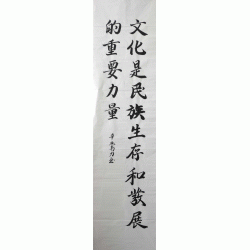 文化是民族生存和发展
的重要力量